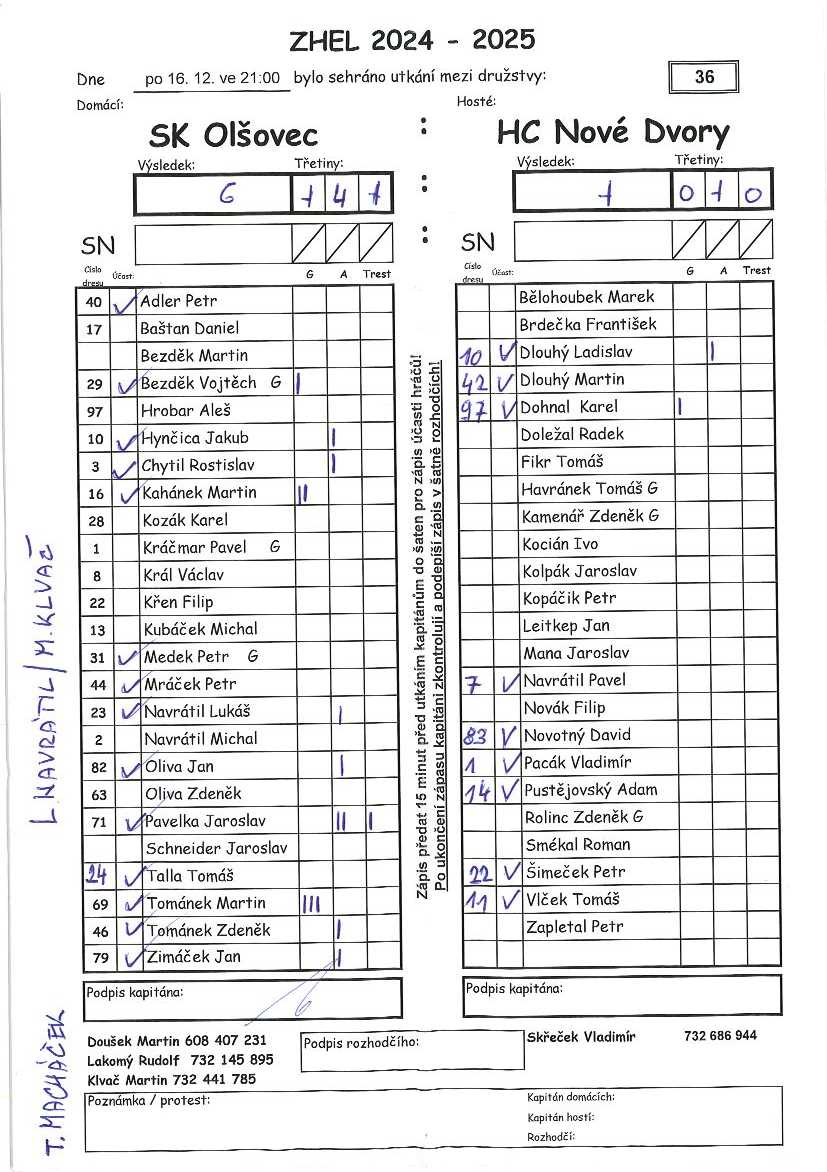 ZHEL 2024 - 2025
Dne po 16. 12. ve 21:00 bylo sehráno utkání mezi družstvy: 36
Domácí: Hosté:
SK Olšovec : HC Nové Dvory
Výsledek: Třetiny: Výsledek: Třetiny:
6 1 4 1 : 1 0 1 0
SN : SN
Číslo dresu Účast: G A Trest
40 ✓ Adler Petr
17 Baštan Daniel
Bezděk Martin
29 ✓ Bezděk Vojtěch G I
97 Hrobar Aleš
10 ✓ Hynčica Jakub I
3 ✓ Chytil Rostislav I
16 ✓ Kahánek Martin II
28 Kozák Karel
1 Kráčmar Pavel G
8 Král Václav
22 Křen Filip
13 Kubáček Michal
31 ✓ Medek Petr G
44 ✓ Mráček Petr
23 ✓ Navrátil Lukáš I
2 Navrátil Michal
82 ✓ Oliva Jan I
63 Oliva Zdeněk
71 ✓ Pavelka Jaroslav II I
Schneider Jaroslav
24 ✓ Talla Tomáš
69 ✓ Tománek Martin III
46 ✓ Tománek Zdeněk I
79 ✓ Zimáček Jan I
Podpis kapitána:
6
Zápis předat 15 minut před utkáním kapitánům do šaten pro zápis účasti hráčů!
Po ukončení zápasu kapitáni zkontrolují a podepíší zápis v šatně rozhodčích!
Číslo dresu Účast: G A Trest
Bělohoubek Marek
Brdečka František
10 ✓ Dlouhý Ladislav I
42 ✓ Dlouhý Martin
97 ✓ Dohnal Karel I
Doležal Radek
Fikr Tomáš
Havránek Tomáš G
Kamenář Zdeněk G
Kocián Ivo
Kolpák Jaroslav
Kopáčik Petr
Leitkep Jan
Mana Jaroslav
7 ✓ Navrátil Pavel
Novák Filip
83 ✓ Novotný David
1 ✓ Pacák Vladimír
14 ✓ Pustějovský Adam
Rolinc Zdeněk G
Smékal Roman
22 ✓ Šimeček Petr
11 ✓ Vlček Tomáš
Zapletal Petr
Podpis kapitána:
L. NAVRÁTIL / M. KLVAČ
T. MACHÁČEK
Doušek Martin 608 407 231
Lakomý Rudolf 732 145 895
Klvač Martin 732 441 785
Podpis rozhodčího:
Skřeček Vladimír 732 686 944
Poznámka / protest:
Kapitán domácích:
Kapitán hostí:
Rozhodčí: